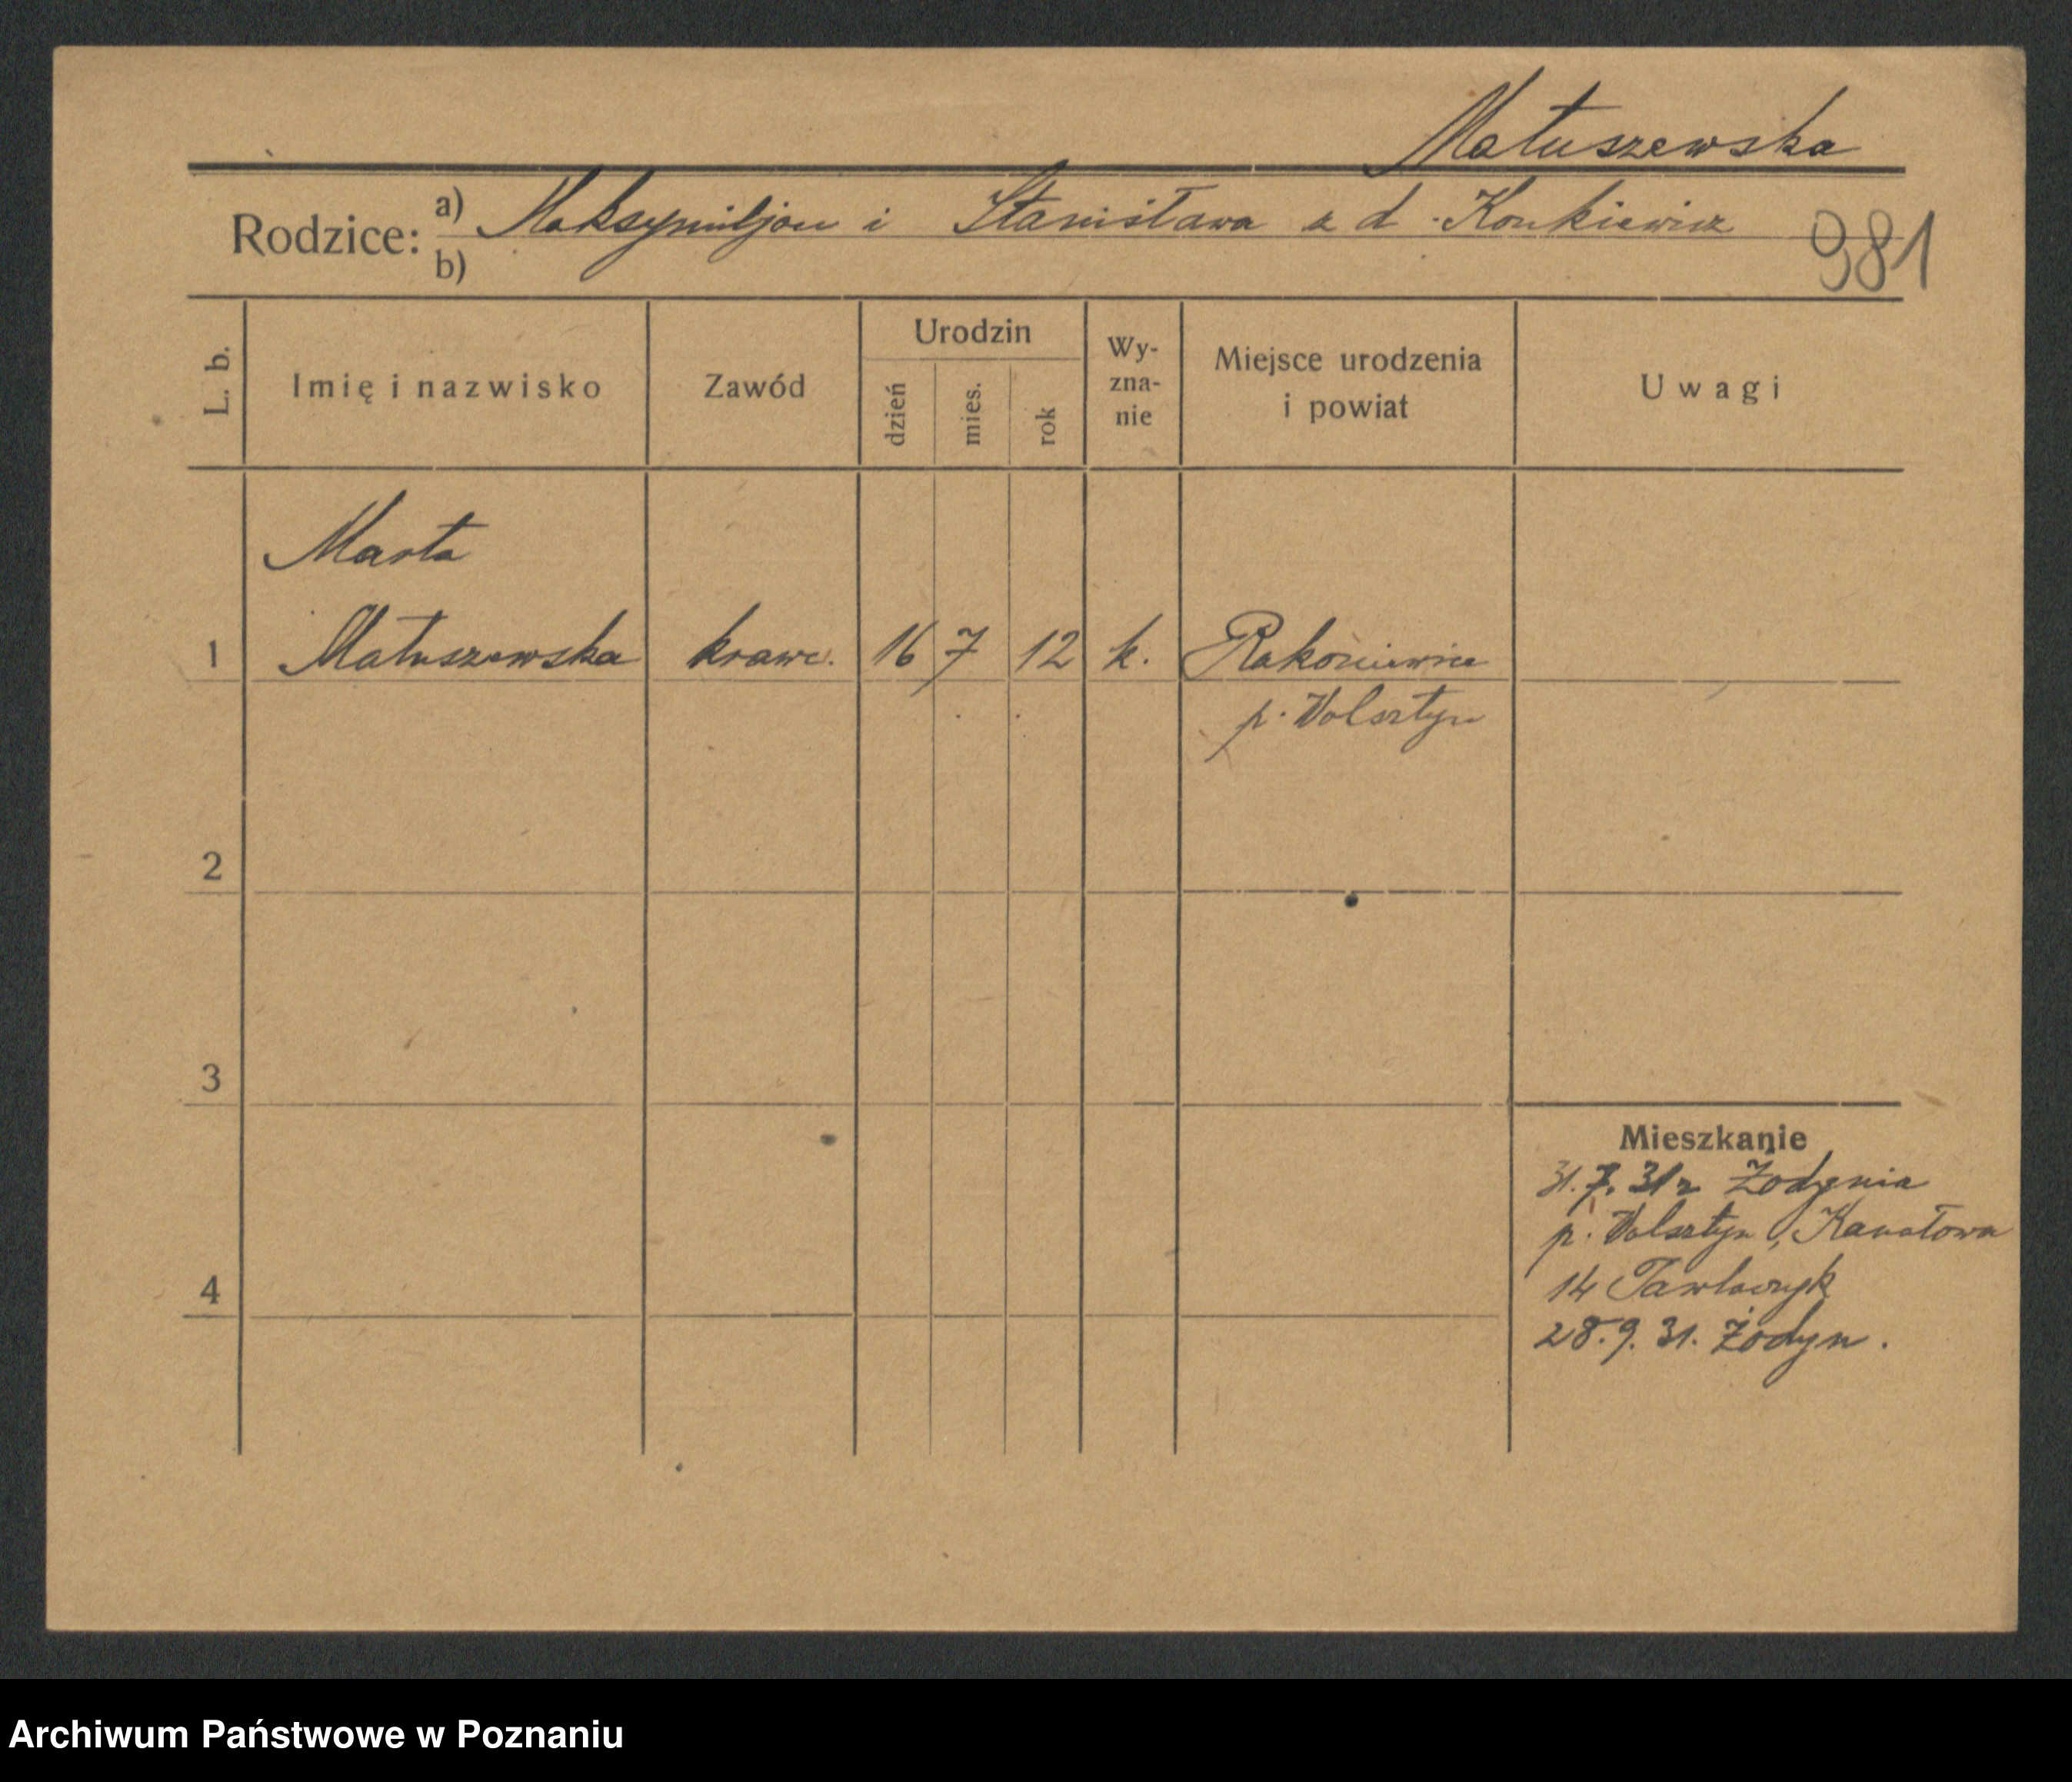 Matuszewska
Rodzice: a) Maksymiljan i Stanisława z d. Konkiewicz
b)
981
L. b. Imię i nazwisko Zawód Urodzin dzień mies. rok Wy-zna-nie Miejsce urodzenia i powiat Uwagi
Marta
1 Matuszewska krawc. 16 7 12 k. Rakoniewice
p. Wolsztyn
2
3
Mieszkanie
31.7.31 r Żodynia
p. Wolsztyn, Kanałowa
4
14 Pawlaczyk
28.9.31. Żodyn.
Archiwum Państwowe w Poznaniu